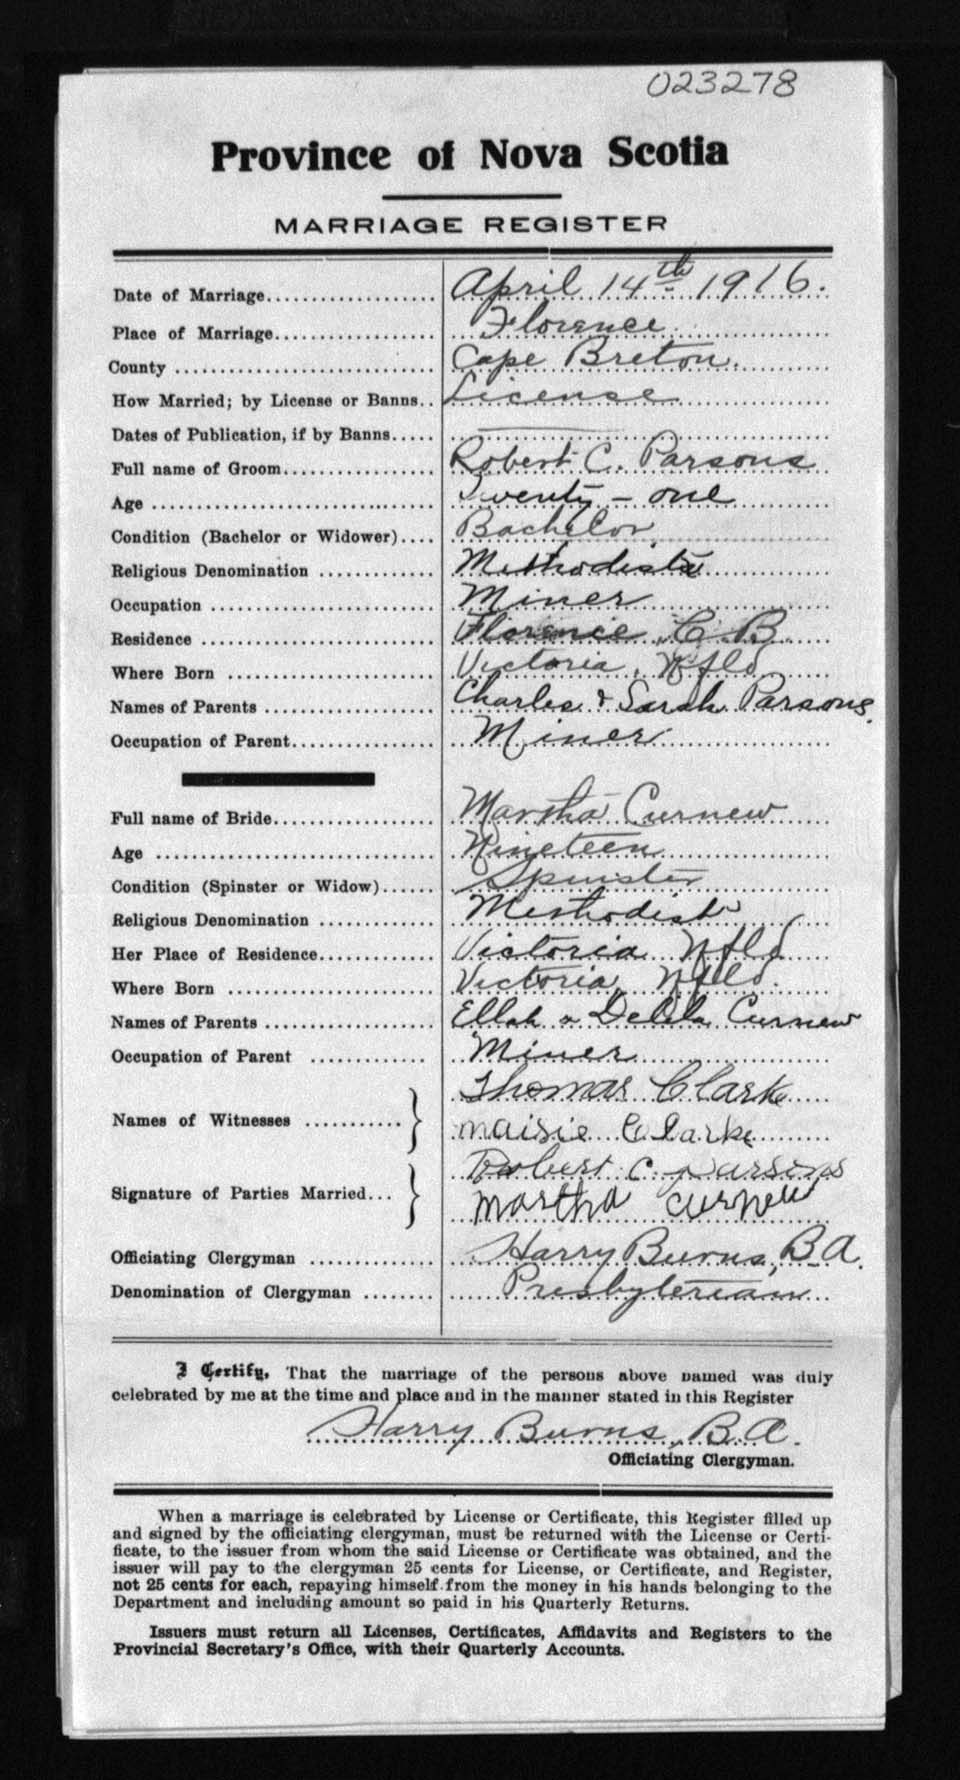 023278
Province of Nova Scotia
MARRIAGE REGISTER
Date of Marriage................... April 14th 1916.
Place of Marriage.................. Florence
County ............................. Cape Breton.
How Married; by License or Banns.. License
Dates of Publication, if by Banns..... ———
Full name of Groom................. Robert C. Parsons
Age ................................ Twenty-one
Condition (Bachelor or Widower).... Bachelor
Religious Denomination ............. Methodist
Occupation ......................... Miner
Residence .......................... Florence C. B.
Where Born ....................... Victoria, Nfld
Names of Parents ................... Charles & Sarah Parsons
Occupation of Parent................ Miner
Full name of Bride.................. Martha Curnew
Age ............................... Nineteen
Condition (Spinster or Widow)...... Spinster
Religious Denomination ............. Methodist
Her Place of Residence............. Victoria Nfld
Where Born ....................... Victoria, Nfld.
Names of Parents ................... & Delila Curnew
Occupation of Parent ............. Miner
Names of Witnesses ........... } Thomas Clarke
Maisie Clarke
Signature of Parties Married... } Robert C. Parsons
Martha Curnew
Officiating Clergyman .............. Harry Burns, B.A.
Denomination of Clergyman ........ Presbyterian
I Certify, That the marriage of the persons above named was duly
celebrated by me at the time and place and in the manner stated in this Register
Harry Burns, B.A.
Officiating Clergyman.
When a marriage is celebrated by License or Certificate, this Register filled up
and signed by the officiating clergyman, must be returned with the License or Certi-
ficate, to the issuer from whom the said License or Certificate was obtained, and the
issuer will pay to the clergyman 25 cents for License, or Certificate, and Register,
not 25 cents for each, repaying himself from the money in his hands belonging to the
Department and including amount so paid in his Quarterly Returns.
Issuers must return all Licenses, Certificates, Affidavits and Registers to the
Provincial Secretary's Office, with their Quarterly Accounts.